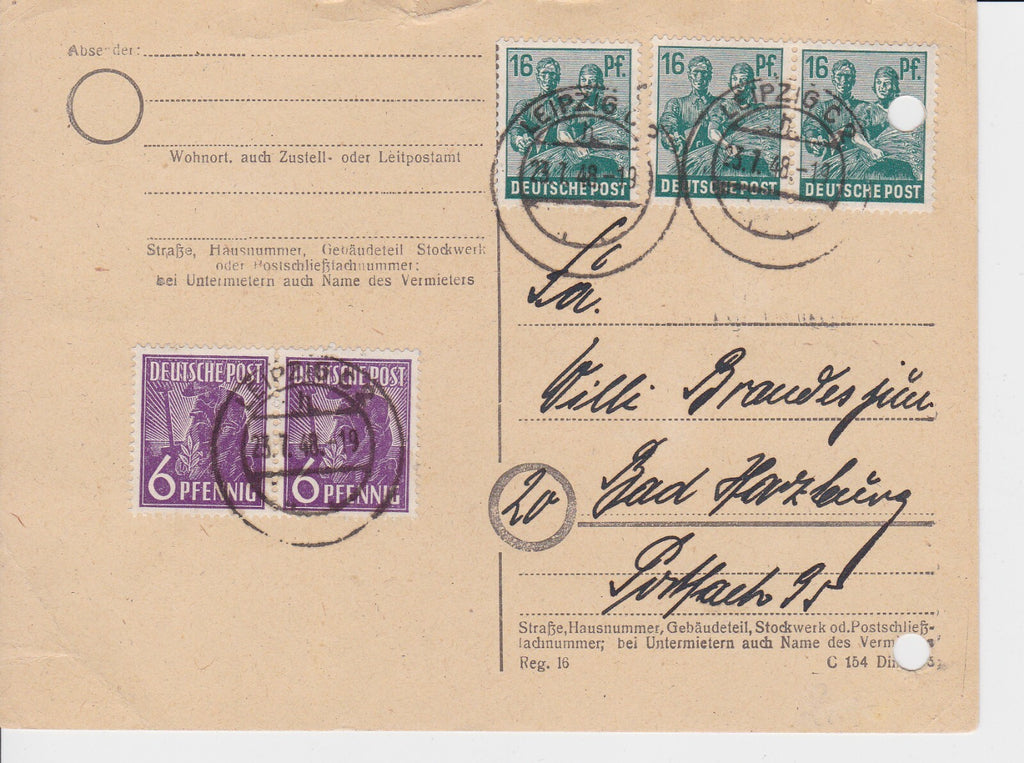 Absender:
Wohnort, auch Zustell- oder Leitpostamt
Straße, Hausnummer, Gebäudeteil Stockwerk
oder Postschließfachnummer:
bei Untermietern auch Name des Vermieters
16 Pf.
DEUTSCHE POST
16 Pf.
DEUTSCHE POST
16 Pf.
DEUTSCHE POST
LEIPZIG C
n
23.7.48.-19
LEIPZIG C
n
23.7.48.-19
Fa.
Willi Brandes jün
20
Bad Harzburg
Postfach 95
DEUTSCHE POST
6 PFENNIG
DEUTSCHE POST
6 PFENNIG
LEIPZIG C
n
23.7.48.-19
Straße, Hausnummer, Gebäudeteil, Stockwerk od. Postschließ-
fachnummer; bei Untermietern auch Name des
Reg. 16
C 154 Din